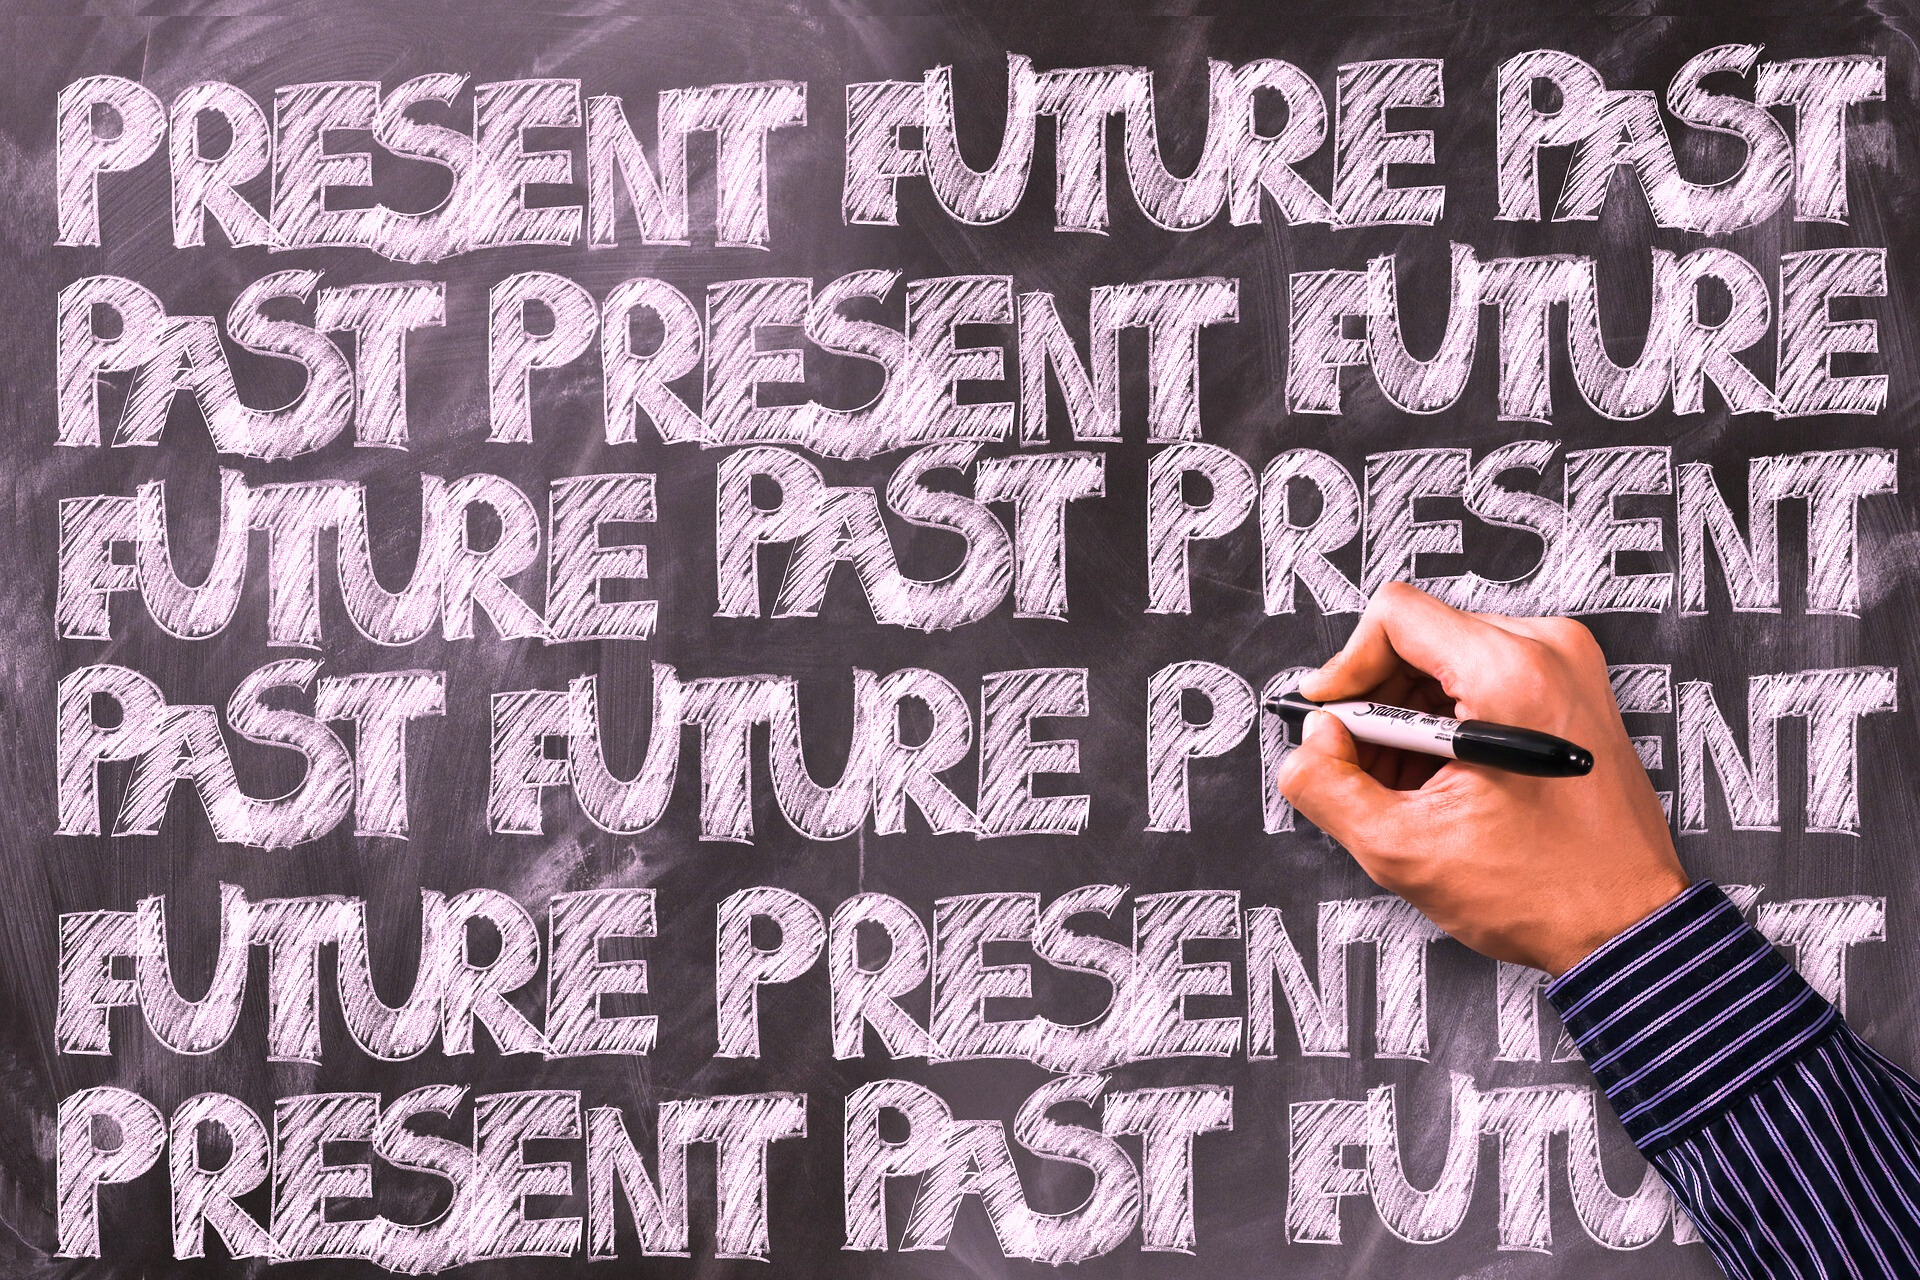 PRESENT FUTURE PAST
PAST PRESENT FUTURE
FUTURE PAST PRESENT
PAST FUTURE
FUTURE PRESENT
PRESENT PAST
Sharpie